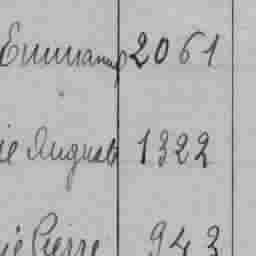 Emmanuel 2061
ie August 1322
ie Pierre 943